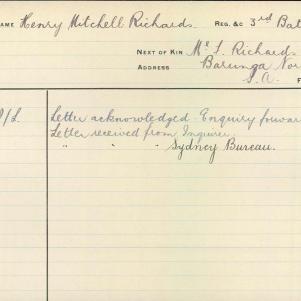 NAME Henry Mitchell Richards REG. &C 3rd Bat
NEXT OF KIN Mr L. Richards
ADDRESS Barunga Nor
S.A.
Letter acknowledged. Enquiry forwar
Letter received from Inquirer
" " " Sydney Bureau.